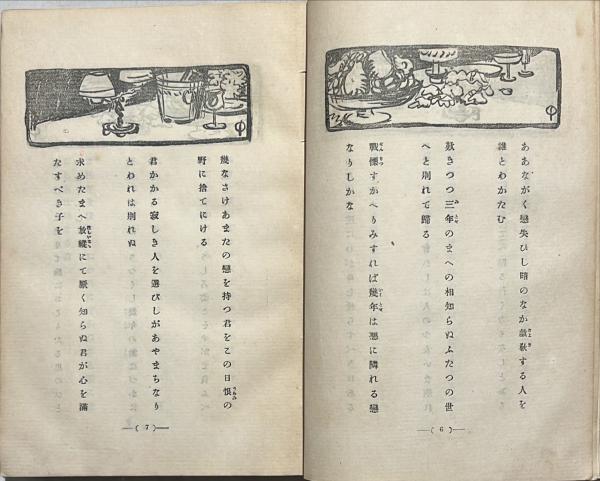 ああながく戀失ひし暗のなか歔欷する人を
誰とわかたむ
歎きつつ三年のまへの相知らぬふたつの世
へと別れて歸る
戰慄すかへりみすれば幾年は惡に隣れる戀
なりしかな
—( 6 )—
幾なさけあまたの戀を持つ君をこの日恨の
野に捨てにける
君かかる寂しき人を選びしがあやまちなり
とわれは別れぬ
求めたまへ放縱にて厭く知らぬ君が心を滿
たすべき子を
—( 7 )—